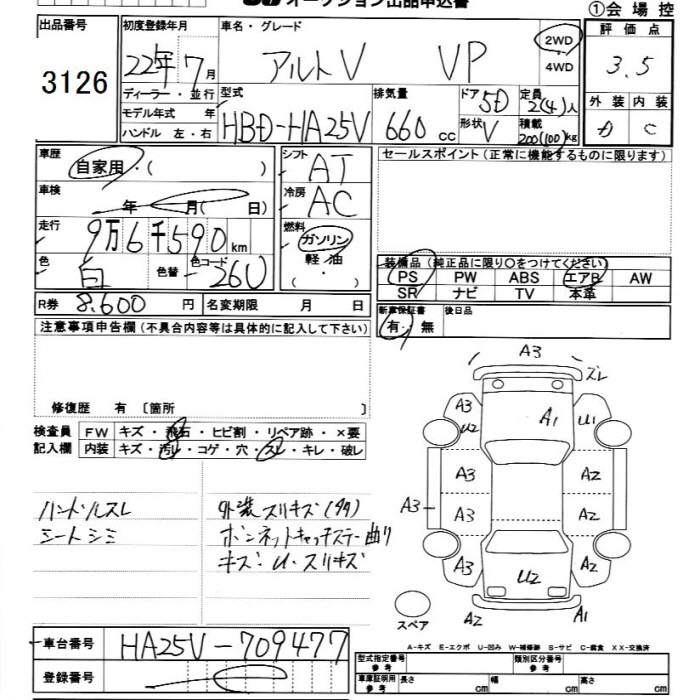 オークション出品申込書
①会場控
出品番号
3126
初度登録年月
22年7月
車名・グレード
アルトV VP
2WD
4WD
評価点
3.5
ディーラー・並行
モデル年式 年
ハンドル 左・右
型式
HBD-HA25V
排気量
660cc
ドア 5D
形状 V
定員 2(4)人
積載 200(100)kg
外装 内装
D C
車歴
自家用・( )
シフト AT
セールスポイント (正常に機能するものに限ります)
車検
年 月( 日)
冷房 AC
走行
9万6千590km
燃料
ガソリン
軽・油
( ・ )
色
白
色替
色コード
26U
装備品 (純正品に限り○をつけてください)
PS PW ABS エアB AW
SR ナビ TV 本革
R券 8.600円
名変期限 月 日
新車保証書 後日品
有・無
注意事項申告欄 (不具合内容等は具体的に記入して下さい)
修復歴 有 〔箇所 〕
検査員
記入欄
FW キズ・飛石・ヒビ割・リペア跡・×要
内装 キズ・汚れ・コゲ・穴・スレ・キレ・破レ
ハンドルスレ
シートシミ
外装スリキズ(多)
ボンネットキャッチステー曲り
キズ・U・スリキズ
A3
ズレ
A3 U2 A1 U1
A3 A2
A3 A3 A2
A3 U2 A2
スペア A2 A1
A-キズ E-エクボ U-凹み W-補修跡 S-サビ C-腐食 XX-交換済
車台番号 HA25V-709477
登録番号
型式指定番号 参考
類別区分番号 参考
車庫証明用 参考 長さ cm 幅 cm 高さ cm